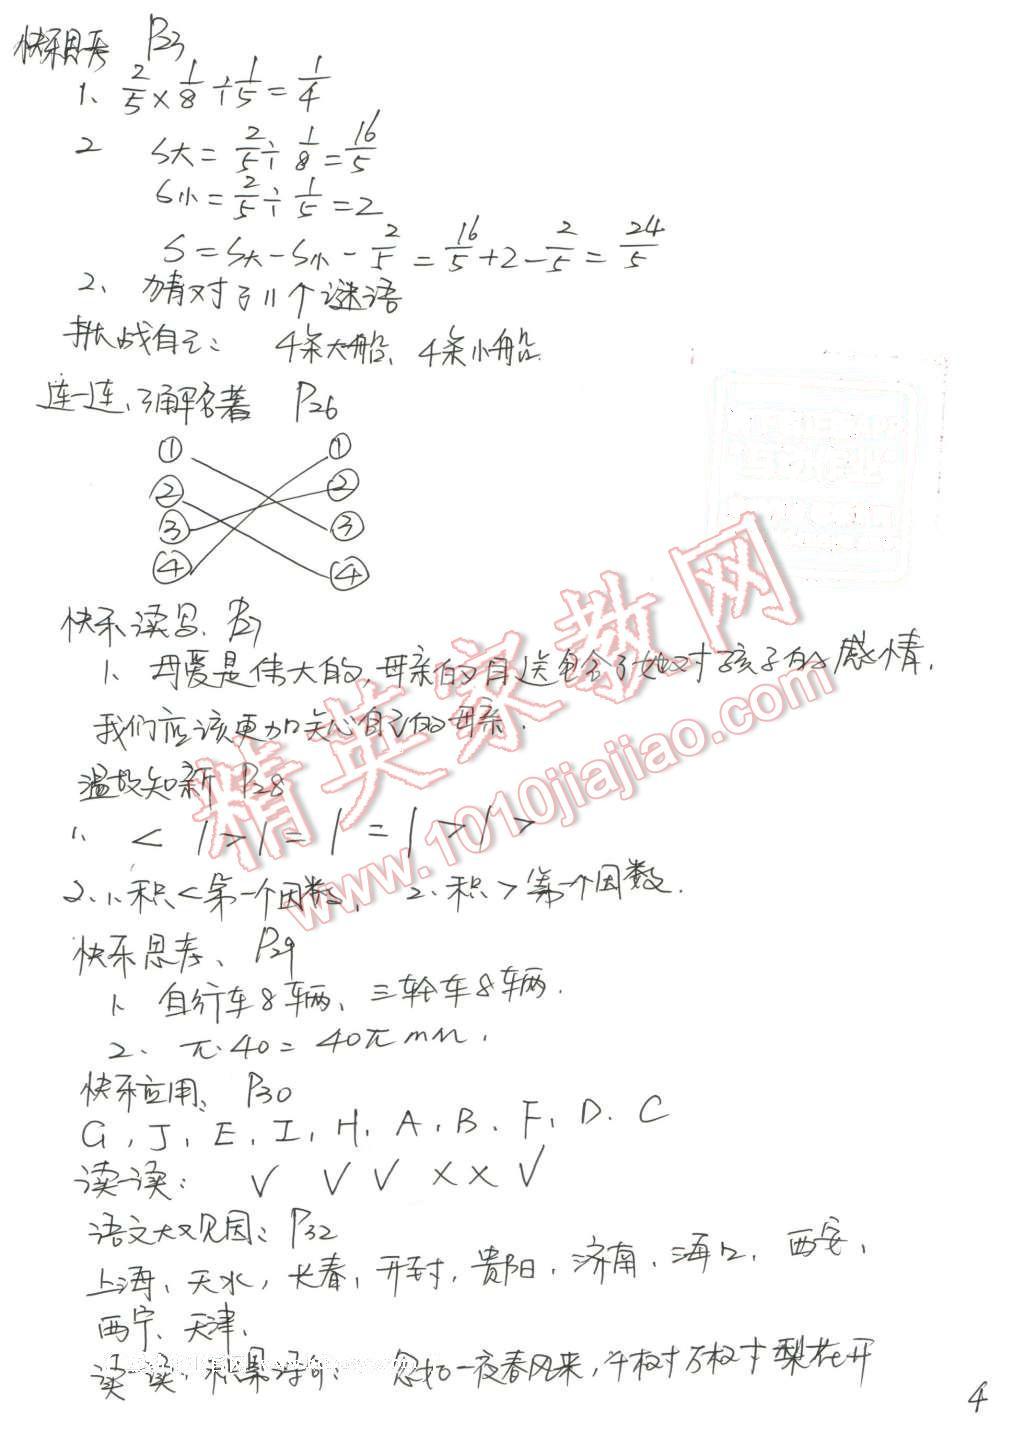 快乐思考 P23
1、2/5×1/8÷1/5=1/4
2 S大=2/5÷1/8=16/5
S小=2/5÷1/5=2
S=S大-S小-2/5=16/5+2-2/5=24/5
2、猜对了11个谜语
挑战自己：4条大船、4条小船
连一连、了解名著 P26
① ①
② ②
③ ③
④ ④
快乐读写、P27
1、母爱是伟大的，母亲的目送包含了她对孩子的感情．
我们应该更加关心自己的母亲．
温故知新 P28
1、< | > | = | = | > | >
2、1、积<第一个因数， 2、积>第一个因数．
快乐思考、P29
1、自行车8辆、三轮车8辆．
2、π·40=40π mm．
快乐应用、P30
G，J，E，I，H，A，B、F，D、C
读一读：√ √ √ × × √
语文大观园：P32
上海，天水，长春，开封，贵阳，济南，海口，西安，
西宁、天津，
读一读，积累诗句：忽如一夜春风来，千树万树梨花开
4
精英家教网
www.1010jiajiao.com